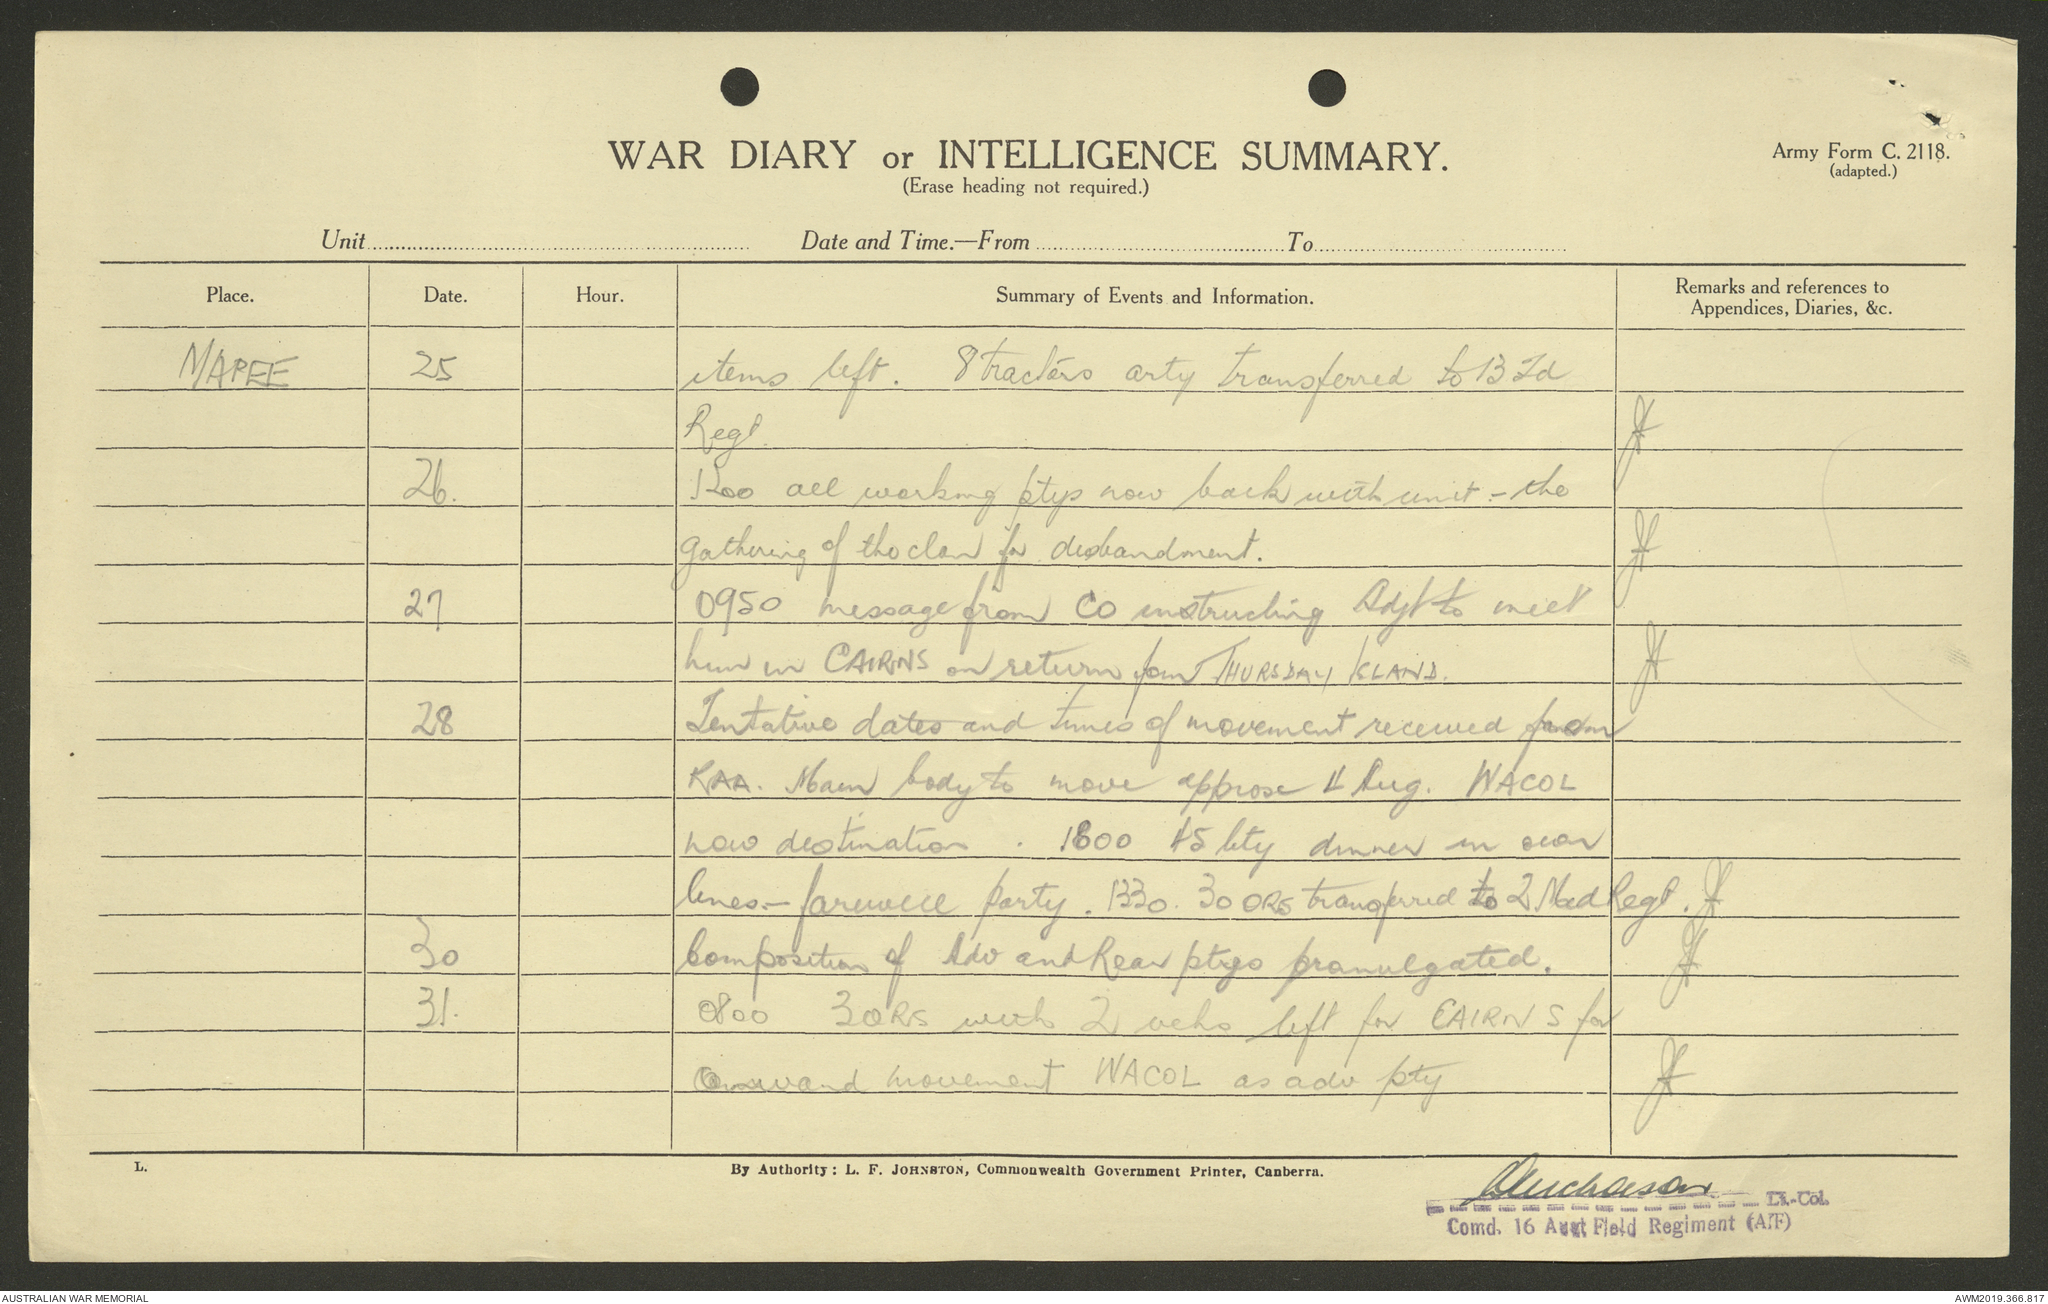 WAR DIARY or INTELLIGENCE SUMMARY.
(Erase heading not required.)
Army Form C. 2118.
(adapted.)
Unit Date and Time.—From To
Place. Date. Hour. Summary of Events and Information. Remarks and references to Appendices, Diaries, &c.
MAREE 25 items left. 8 tractors arty transferred to 13 Fd
Regt.
26. 1200 all working ptys now back with unit - the
gathering of the clan for disbandment.
27 0950 message from CO instructing Adjt to meet
him in CAIRNS on return from THURSDAY ISLAND.
28 Tentative dates and times of movement received from
RAA. Main body to move approx 4 Aug. WACOL
now destination. 1800 45 bty dinner in own
lines - farewell party. 1330. 30 ORs transferred to 2 Med Regt.
30 Composition of Adv and Rear ptys promulgated.
31. 0800 3 ORs with 2 vehs left for CAIRNS for
Onward movement WACOL as adv pty
L. By Authority: L. F. JOHNSTON, Commonwealth Government Printer, Canberra.
Lt.-Col.
Comd. 16 Aust Field Regiment (AIF)
AUSTRALIAN WAR MEMORIAL
AWM2019.366.817